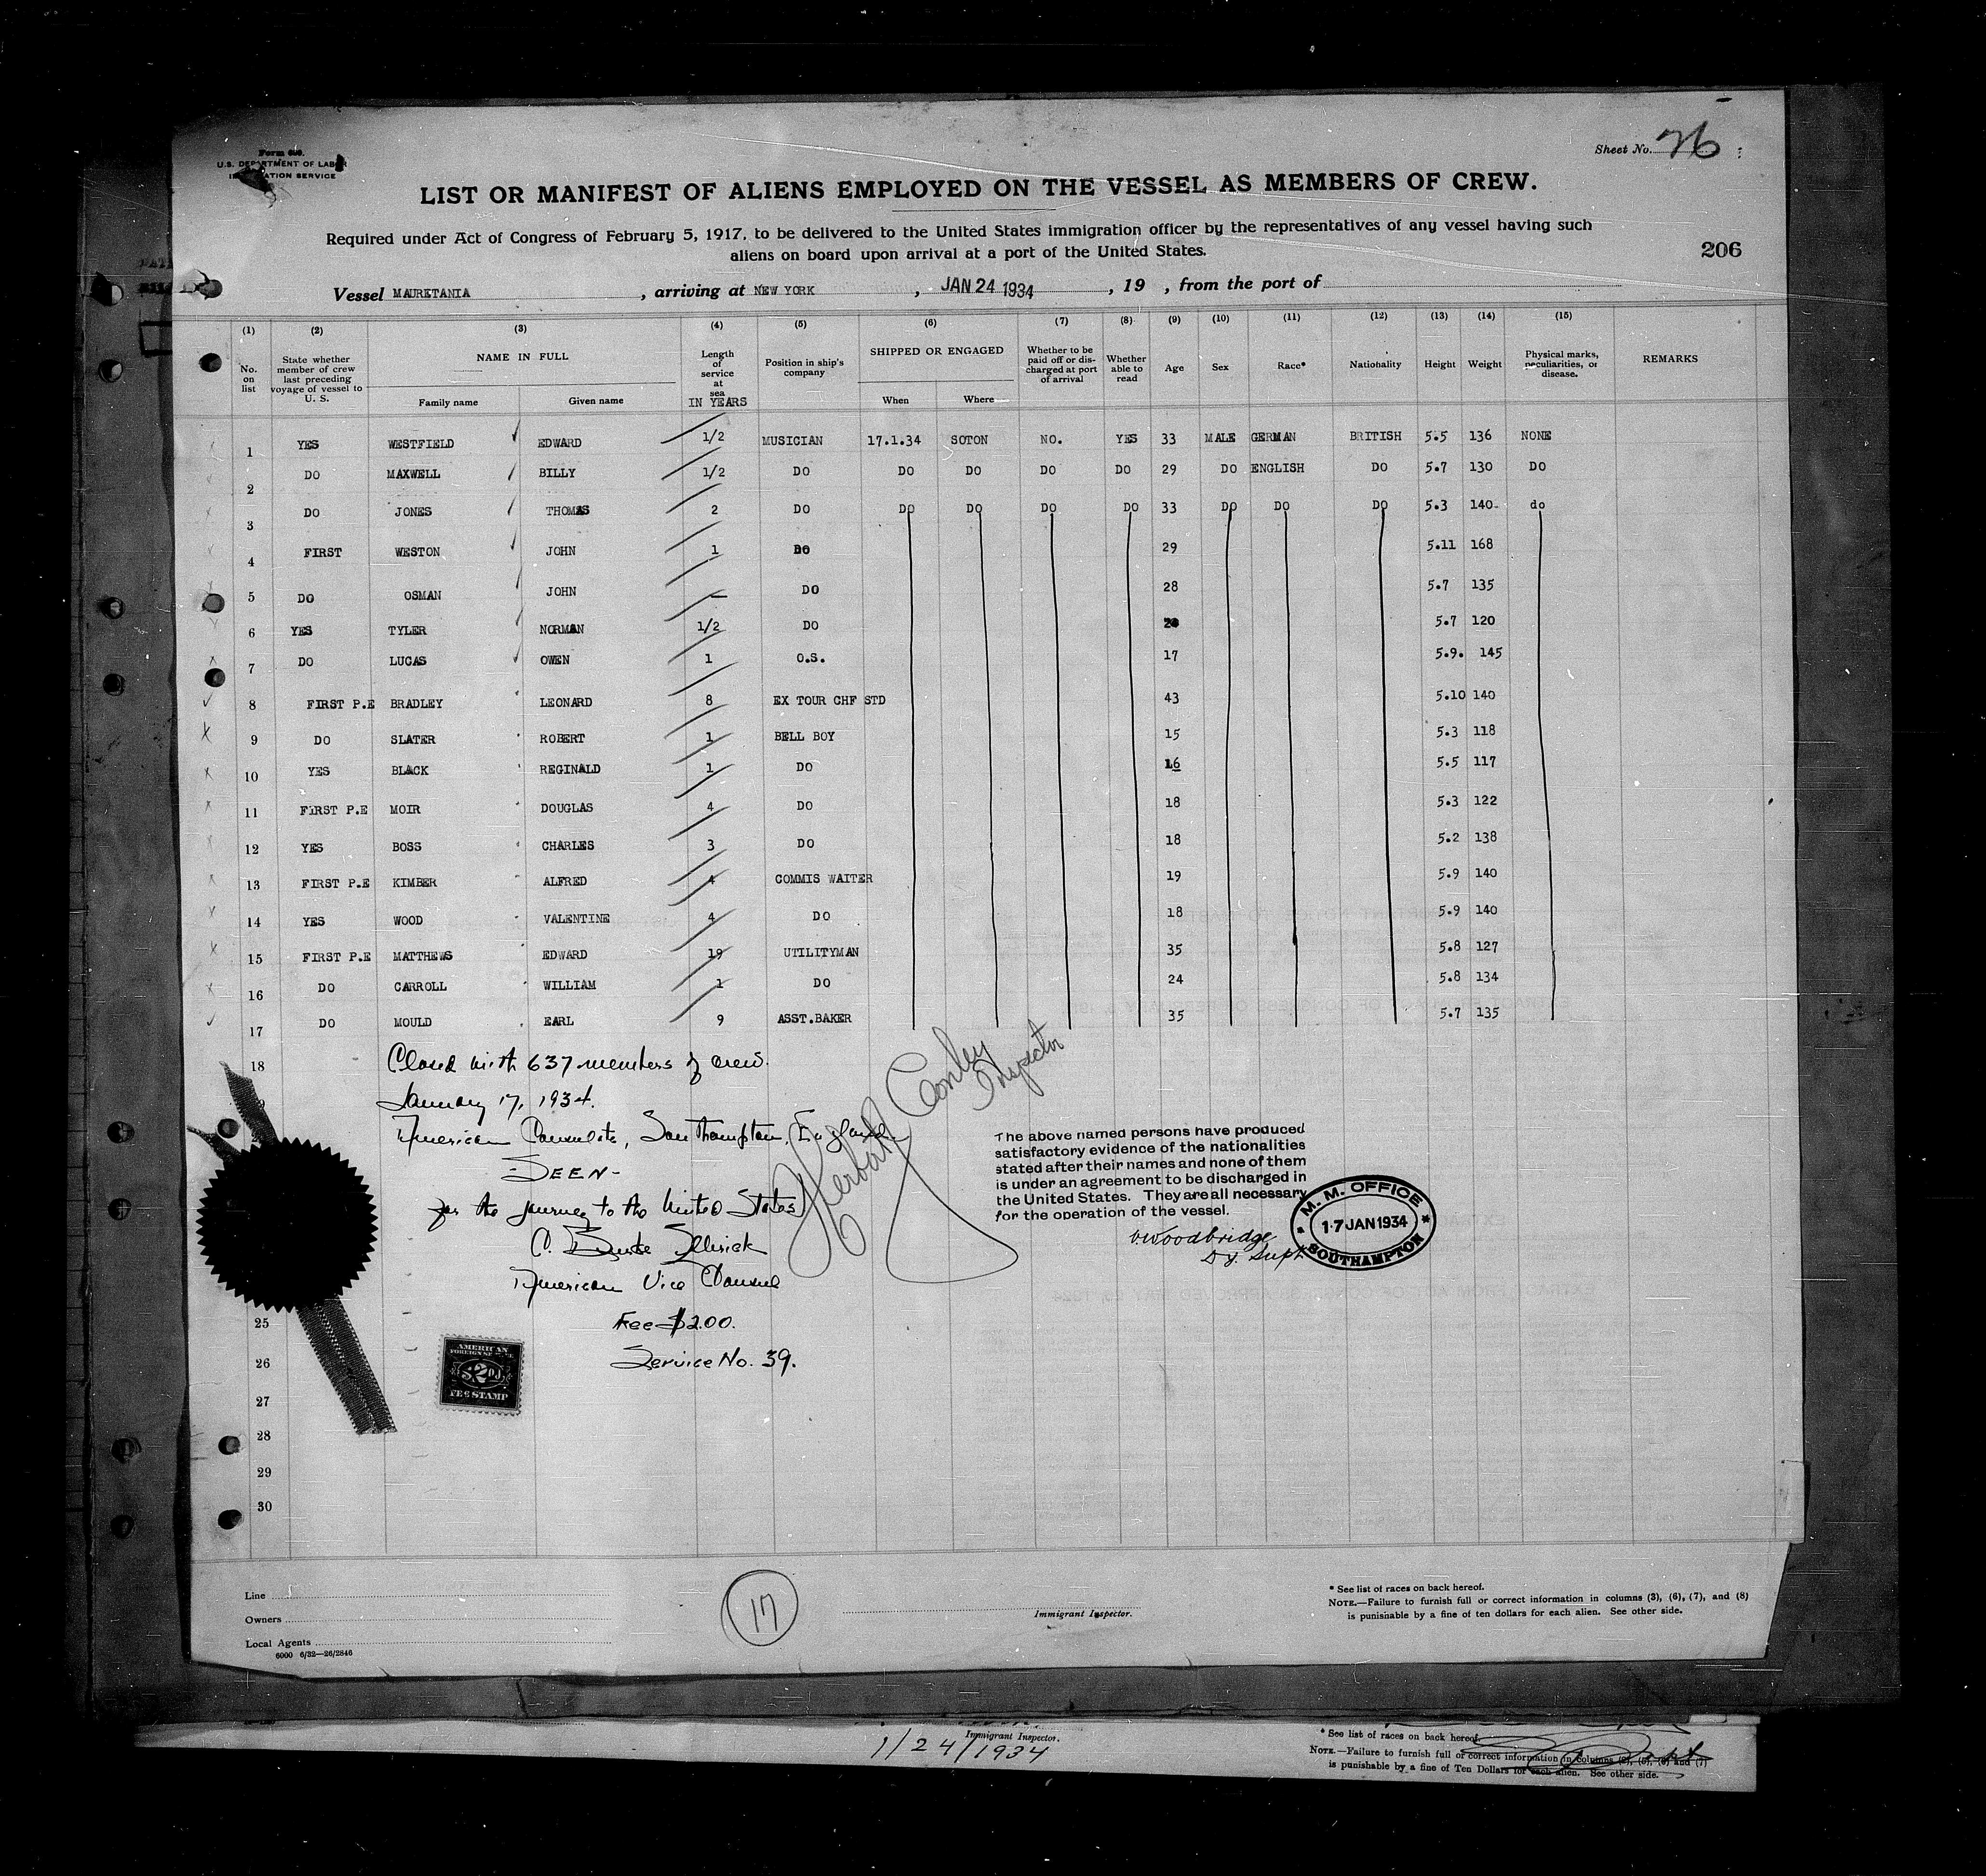 Form 689.
U.S. DEPARTMENT OF LABOR
IMMIGRATION SERVICE
Sheet No. 26
LIST OR MANIFEST OF ALIENS EMPLOYED ON THE VESSEL AS MEMBERS OF CREW.
Required under Act of Congress of February 5, 1917, to be delivered to the United States immigration officer by the representatives of any vessel having such
aliens on board upon arrival at a port of the United States.
206
Vessel MAURETANIA, arriving at NEW YORK, JAN 24 1934, 19 , from the port of
(1) (2) (3) (4) (5) (6) (7) (8) (9) (10) (11) (12) (13) (14) (15)
No. on list State whether member of crew last preceding voyage of vessel to U. S. NAME IN FULL Family name Given name Length of service at sea IN YEARS Position in ship's company SHIPPED OR ENGAGED When Where Whether to be paid off or discharged at port of arrival Whether able to read Age Sex Race* Nationality Height Weight Physical marks, peculiarities, or disease. REMARKS
1 YES WESTFIELD EDWARD 1/2 MUSICIAN 17.1.34 SOTON NO. YES 33 MALE GERMAN BRITISH 5.5 136 NONE
2 DO MAXWELL BILLY 1/2 DO DO DO DO DO 29 DO ENGLISH DO 5.7 130 DO
3 DO JONES THOMAS 2 DO DO DO DO DO 33 DO DO DO 5.3 140 do
4 FIRST WESTON JOHN 1 DO 29 5.11 168
5 DO OSMAN JOHN — DO 28 5.7 135
6 YES TYLER NORMAN 1/2 DO 5.7 120
7 DO LUCAS OWEN 1 O.S. 17 5.9. 145
8 FIRST P.E BRADLEY LEONARD 8 EX TOUR CHF STD 43 5.10 140
9 DO SLATER ROBERT 1 BELL BOY 15 5.3 118
10 YES BLACK REGINALD 1 DO 16 5.5 117
11 FIRST P.E MOIR DOUGLAS 4 DO 18 5.3 122
12 YES BOSS CHARLES 3 DO 18 5.2 138
13 FIRST P.E KIMBER ALFRED 4 COMMIS WAITER 19 5.9 140
14 YES WOOD VALENTINE 4 DO 18 5.9 140
15 FIRST P.E MATTHEWS EDWARD 19 UTILITYMAN 35 5.8 127
16 DO CARROLL WILLIAM 1 DO 24 5.8 134
17 DO MOULD EARL 9 ASST.BAKER 35 5.7 135
18 Closed with 637 members of crew.
January 17, 1934.
American Consulate, Southampton, England
-SEEN-
for the journey to the United States
C.
American Vice Consul
Fee $2.00.
Service No. 39.
Herbert Conley
Inspector
The above named persons have produced
satisfactory evidence of the nationalities
stated after their names and none of them
is under an agreement to be discharged in
the United States. They are all necessary
for the operation of the vessel.
Woodbridge
Dy. Supt
M. M. OFFICE
17 JAN 1934
SOUTHAMPTON
AMERICAN
FEE STAMP
25
26
27
28
29
30
Line
Owners
Local Agents
6000 6/32—26/2846
17
Immigrant Inspector.
* See list of races on back hereof.
NOTE.—Failure to furnish full or correct information in columns (3), (6), (7), and (8)
is punishable by a fine of ten dollars for each alien. See other side.
Immigrant Inspector.
1/24/1934
* See list of races on back hereof.
NOTE.—Failure to furnish full or correct information in columns (3), (5), (6) and (7)
is punishable by a fine of Ten Dollars for each alien. See other side.